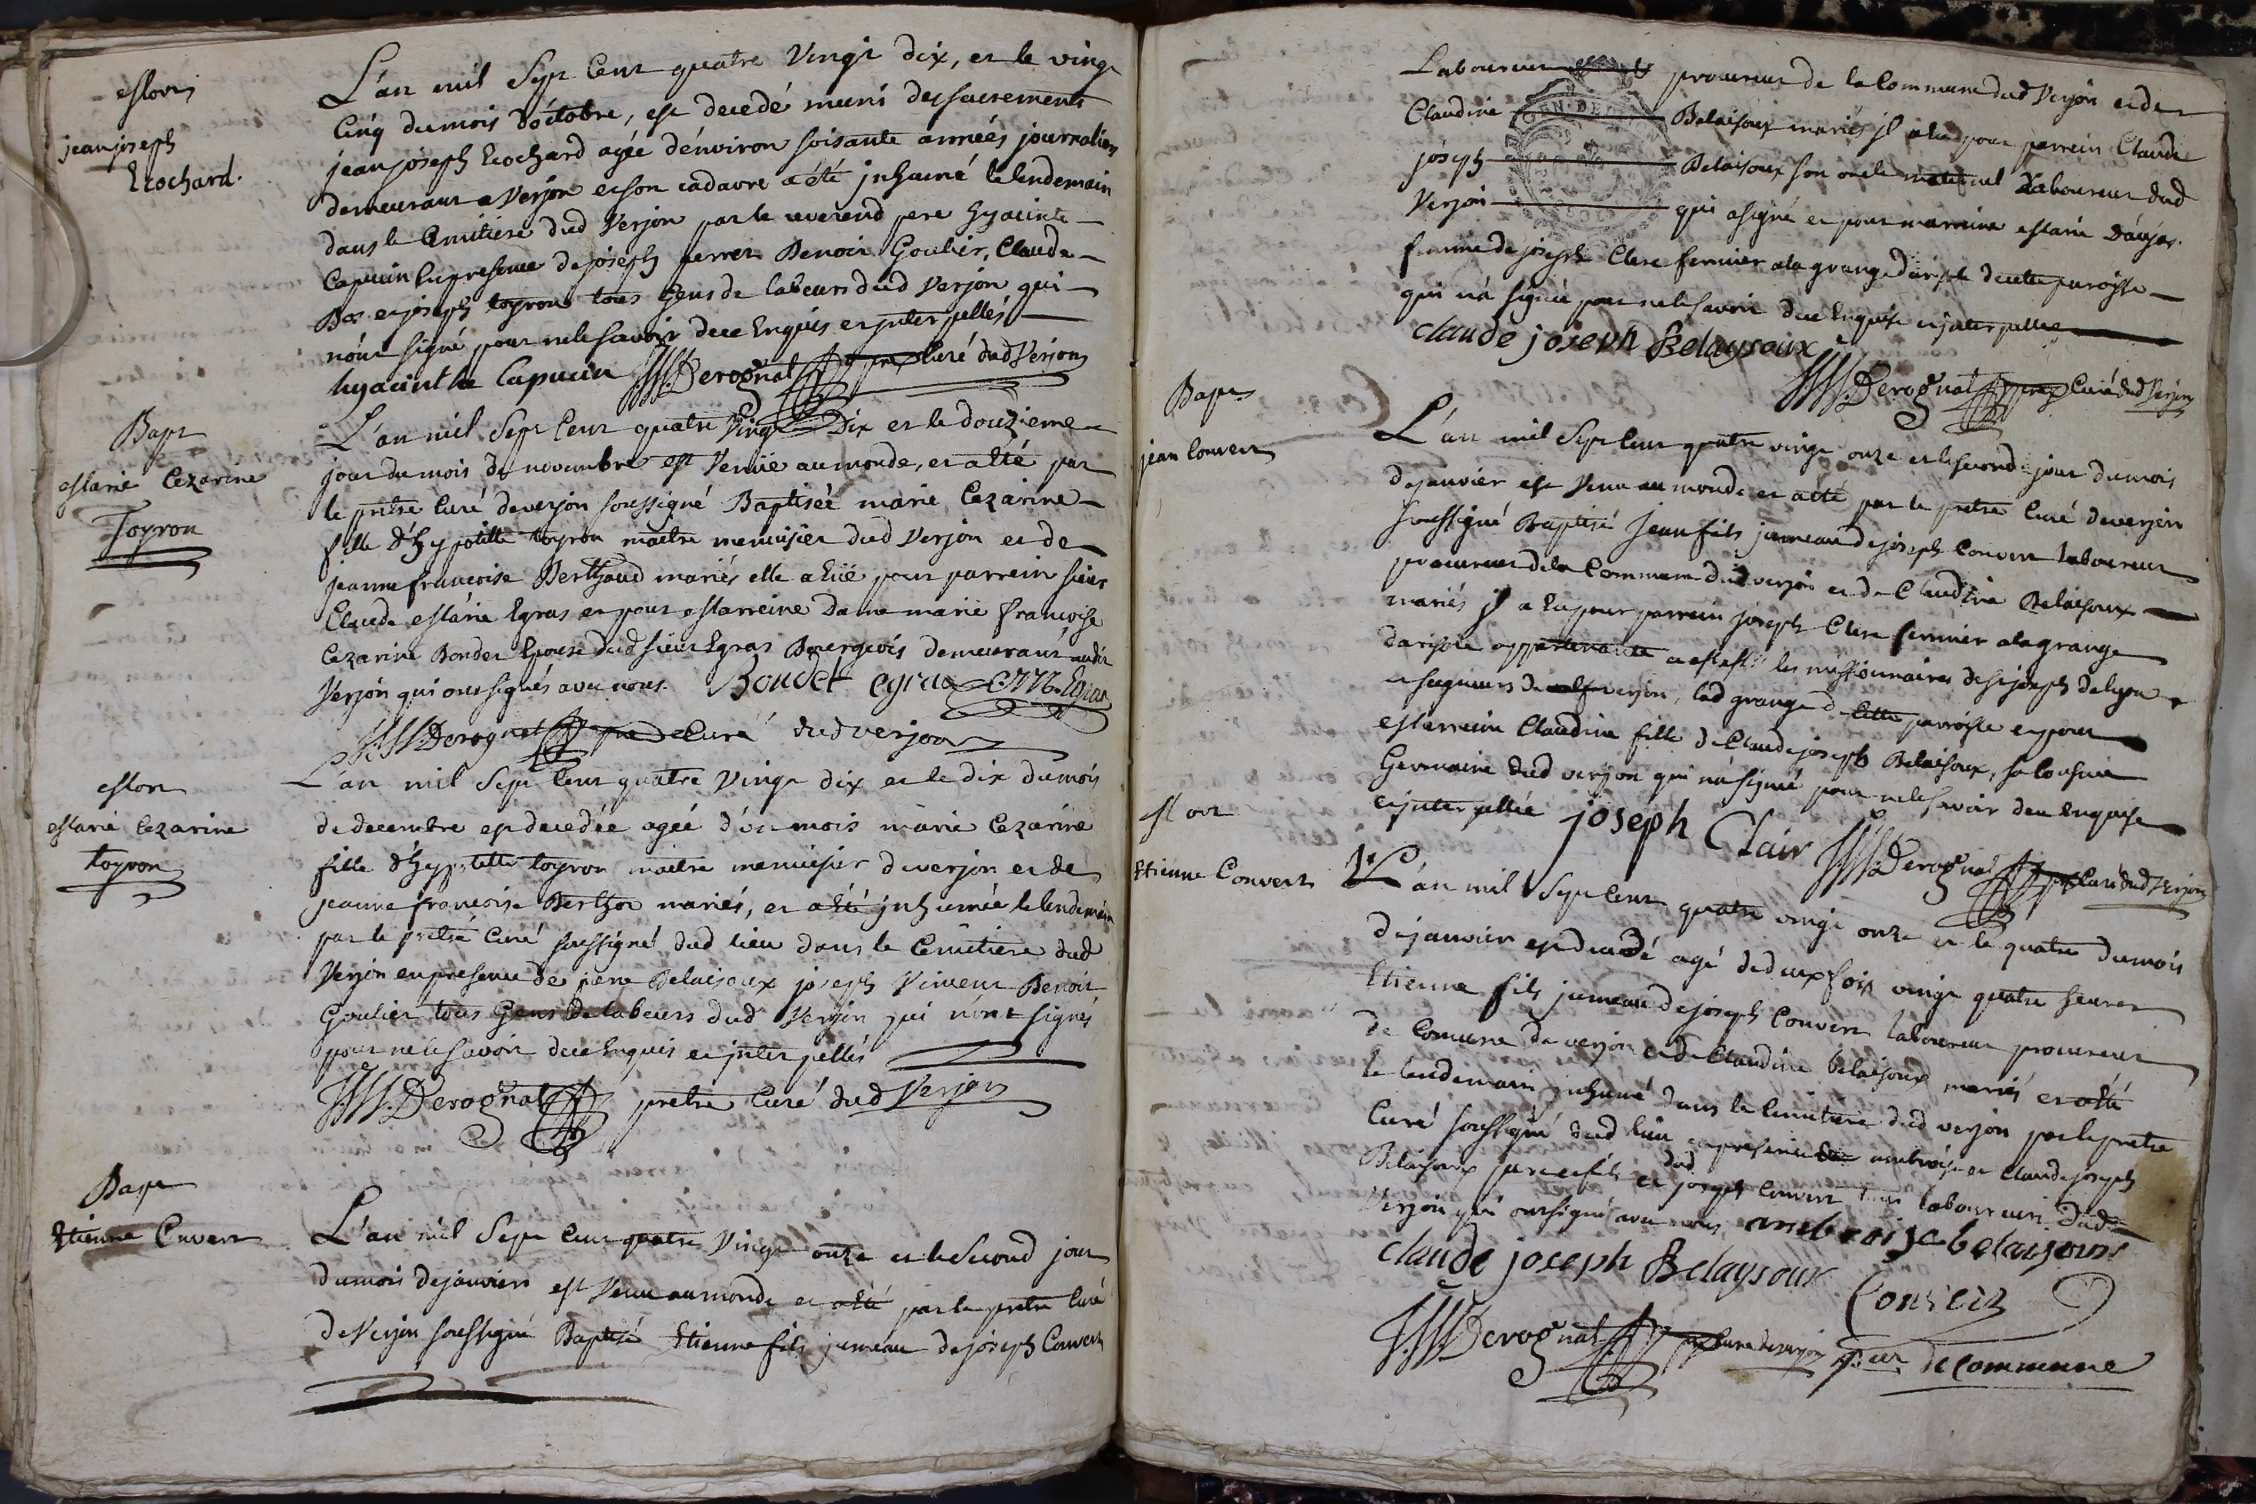 Mort
jean joseph
Ecochard.
L'an mil Sept Cent quatre Vingt dix, et le vingt
Cinq du mois d'octobre, est decedé muni des sacrements
jean joseph Ecochard agée d'environ soisante années journalier
demeurant a Verjon et son cadavre a été jnhumé le lendemain
dans le Cimitiere dud Verjon par le reverend pere hyacinte
Capucin En presence de joseph perret Benoit Goulier, Claude
Box et joseph toyron tous Gens de labeurs dud Verjon qui
n'ont signé pour ne le savoir de ce Enquis et jnterpellés
hyacinthe Capucin Derognat ptre Curé dud Verjon
Bapt
Marie Cezarine
Toyron
L'an mil Sept Cent quatre Vingt Dix et le douzieme
jour du mois de novembre est Venüe au monde, et a été par
le pretre Curé de verjon soussigné Baptisée marie Cezarine
fille d'hypolitte toyron maitre menuisier dud Verjon et de
jeanne francoise Berthaud mariés elle a Eüe pour parrein sieur
Claude Marie Egras et pour Marreine dame marie francoise
Cezarine Bondet Epouse dud sieur Egras Bourgeois demeurant audit
Verjon qui ont signés avec nous. Bondet egras C. M. Egras
Derognat ptre Curé dud verjon
Mort
Marie Cezarine
toyron
L'an mil Sept Cent quatre Vingt dix et le dix du mois
de decembre est decedée agée d'un mois marie Cezarine
fille d'hypolitte toyron maitre menuisier de verjon et de
jeanne francoise Berthod mariés, et a été jnhumée le lendemain
par le pretre Curé soussigné dud lieu dans le Cimitiere dud
Verjon en presence de piere Belaisoux joseph Vincent Benoit
Goulier tous Gens de labeurs dud Verjon qui n'ont signés
pour ne le savoir de ce Enquis et jnterpellés
Derognat pretre Curé dud Verjon
Bapt
Etienne Convert
L'an mil Sept Cent quatre Vingt onze et le Second jour
du mois de janvier est Venu au monde et a été par le pretre Curé
de Verjon soussigné Baptisé Etienne fils jumeau de joseph Convert
Laboureur procureur de la Commune dud Verjon et de
Claudine Belaisoux mariés jl a Eu pour parrein Claude
joseph Belaisoux son oncle maternel Laboureur dud
Verjon qui a signé et pour marreine Marie
femme de joseph Clerc fermier a la grange de cette paroisse
qui n'a signée pour ne le savoir de ce Enquise et jnterpellée
claude joseph Belaysoux
Derognat ptre Curé dud Verjon
Bapt
jean Convert
L'an mil Sept Cent quatre vingt onze et le second jour du mois
de janvier est Venu au monde et a été par le pretre Curé de verjon
soussigné Baptisé Jean fils jumeau de joseph Convert laboureur
procureur de la Commune dud verjon et de Claudine Belaisoux
mariés jl a Eu pour parrein joseph Clerc fermier a la grange
appartenante a les missionnaires de st joseph de lyon
et seigneurs de verjon, lad grange de cette parroisse et pour
Marreine Claudine fille de Claude joseph Belaisoux, sa Cousine
Germaine dud verjon qui n'a signé pour ne le savoir de ce Enquise
et jnterpellée joseph Clair
Derognat ptre Curé dud Verjon
Mort
Etienne Convert
L'an mil Sept Cent quatre vingt onze et le quatre du mois
de janvier est decedé agé de deux fois vingt quatre heures
Etienne fils jumeau de joseph Convert laboureur procureur
de Comune de verjon et de Claudine Belaisoux mariés et a été
le lendemain jnhumé dans le Cimitiere dud verjon par le pretre
Curé soussigné dud lieu en presence de ambroise et Claude joseph
Belaisoux pere et fils et joseph Convert tous laboureurs dud
Verjon qui ont signé avec nous ambroise belaisoux
claude joseph Belaysoux
Convert
Derognat ptre Curé de verjon p.eur de commune